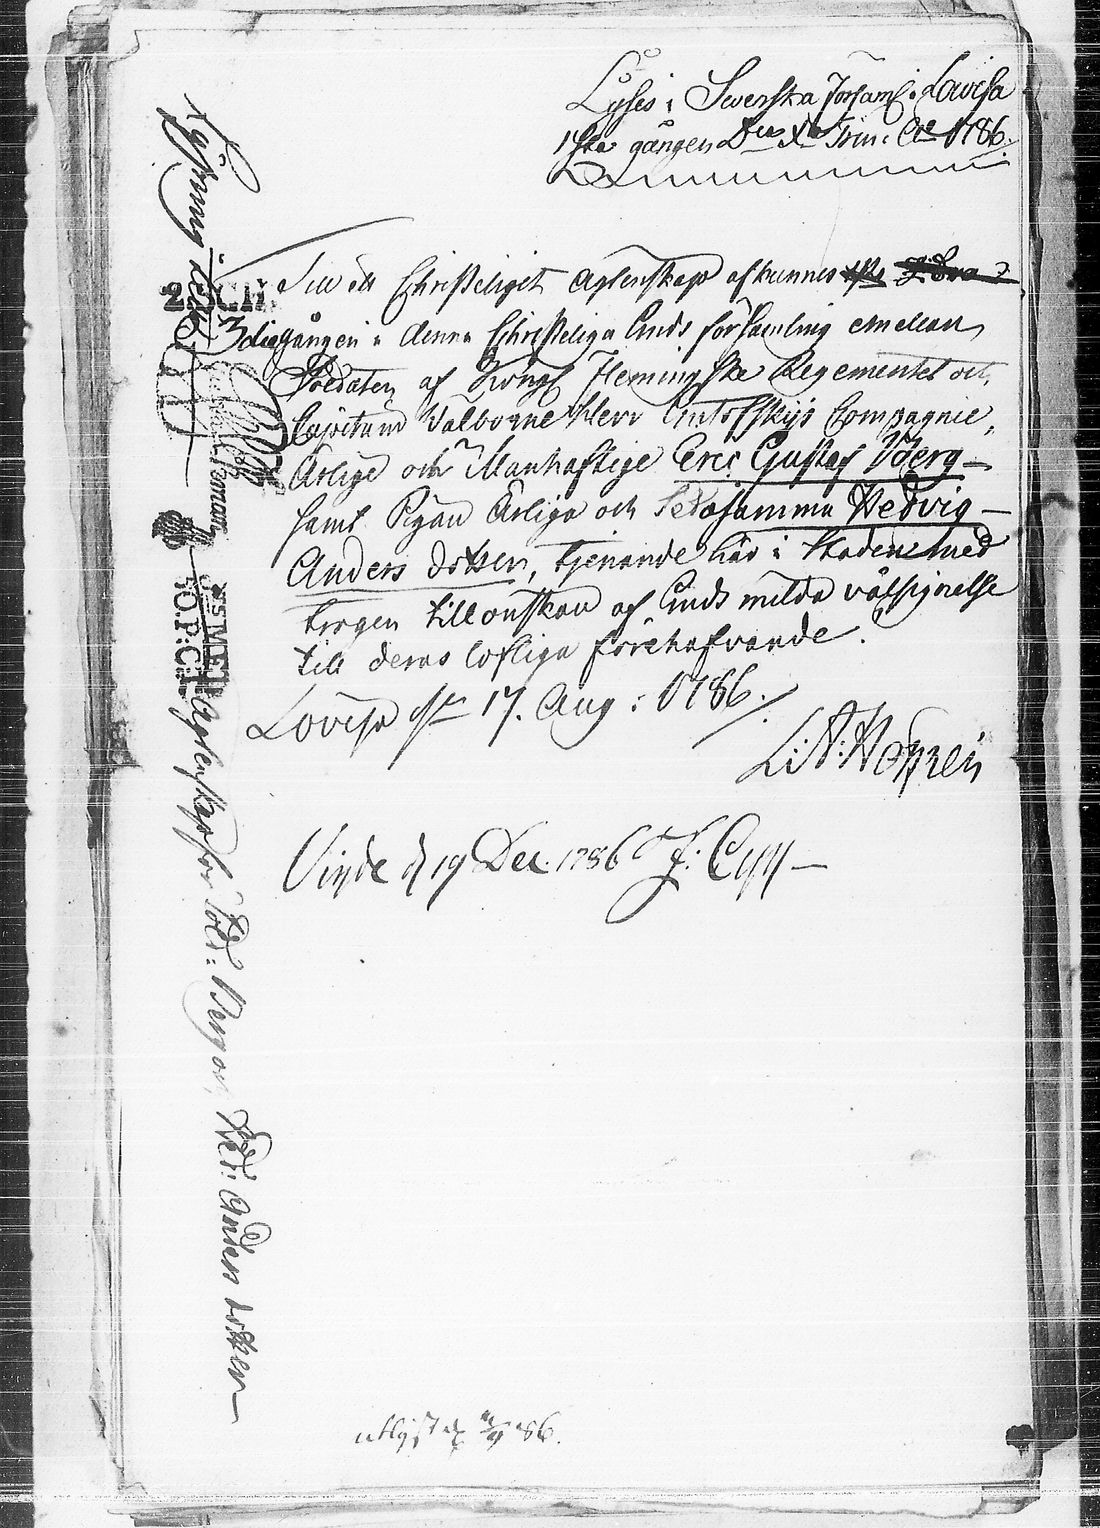 Lyses i Swenska Församl: i Lovisa
1sta gången Dca Xa Trin: Ao 1786.
Till ett Christeligit Ägtenskap afkunnes 1sta
3die gången i denna Christeliga Guds församling emellan
Soldaten af Kongl Flemingska Regementet och
Capitaine Välborne Herr Compagnie,
Ärlige och Manhaftige Eric Gustaf Berg
samt Pigan Ärliga och Sedosamma Hedvig
Anders dotter, tjenande här i Staden med
trogen tillönskan af Guds milda välsignelse
till deras lofliga förehafvande.
Lovisa den 17. Aug: 1786.
L: A: Hoffrén
Vigde d 19 Dec. 1786 af J:
Lysning
2 SCH
SMET
O.P:C.
Ägtenskap för Sold: Berg och Hed: Anders dotter
utlyst d 86.